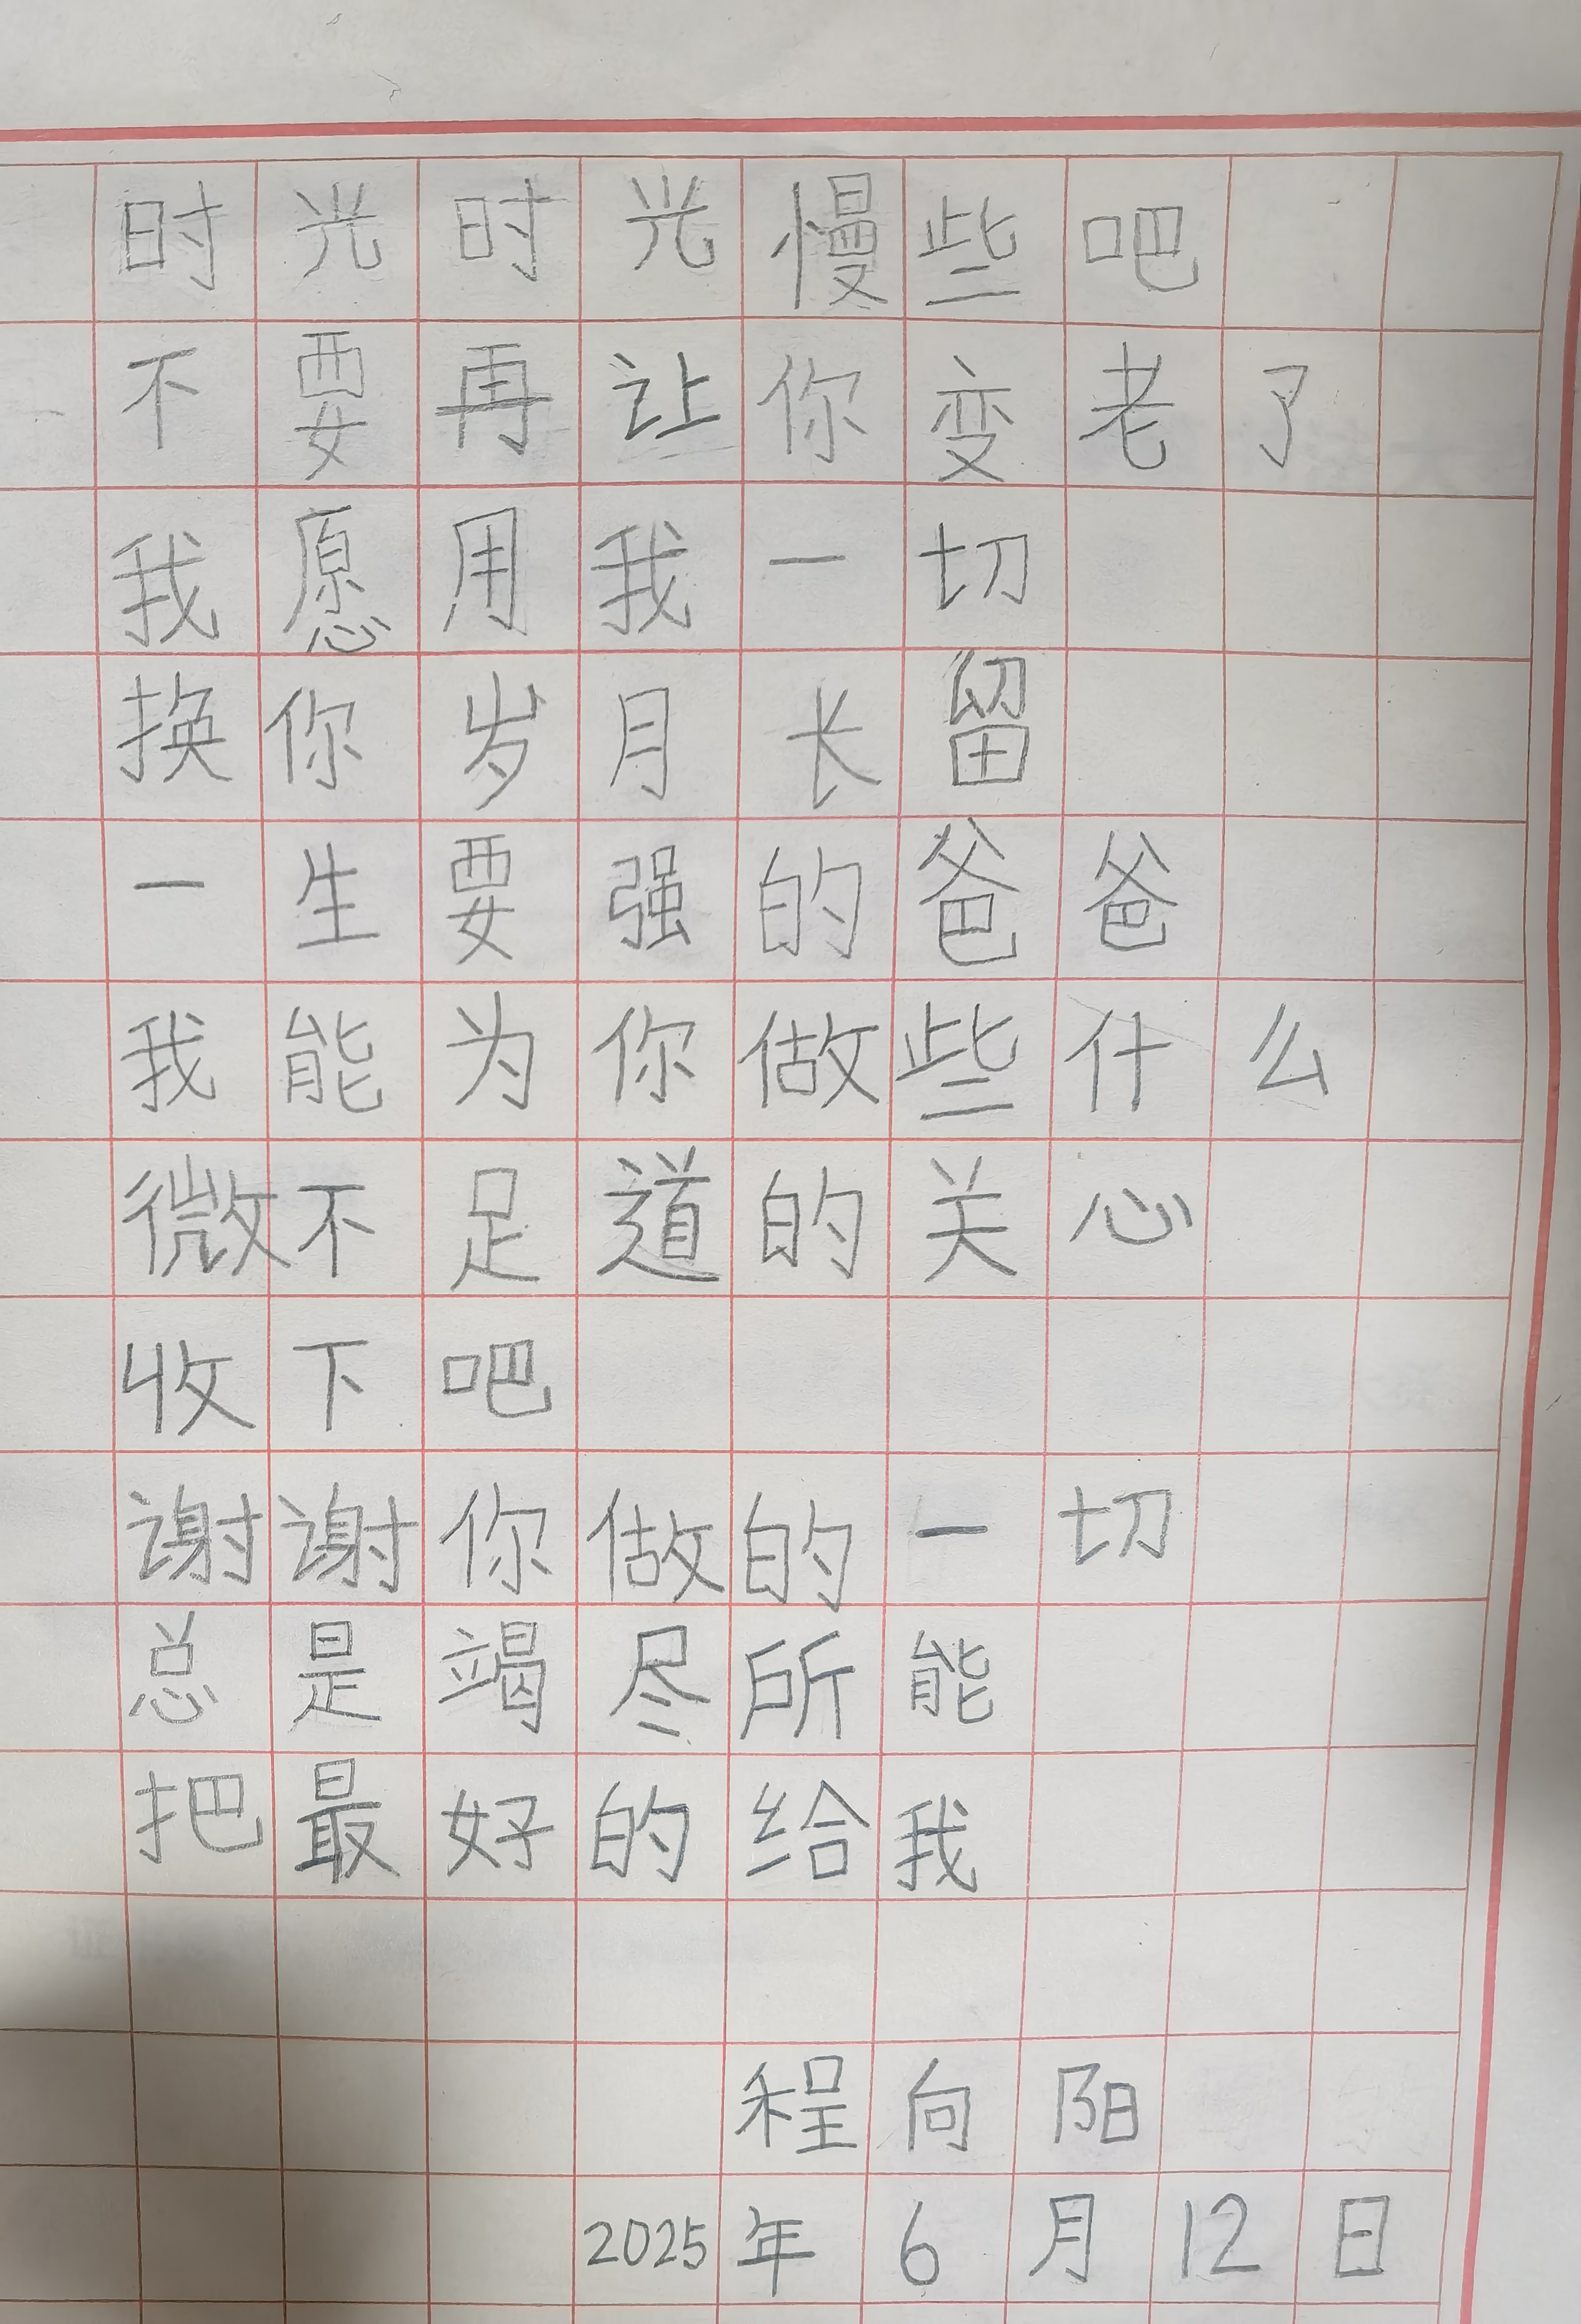 时光时光慢些吧
不要再让你变老了
我愿用我一切
换你岁月长留
一生要强的爸爸
我能为你做些什么
微不足道的关心
收下吧
谢谢你做的一切
总是竭尽所能
把最好的给我
程向阳
2025年6月12日